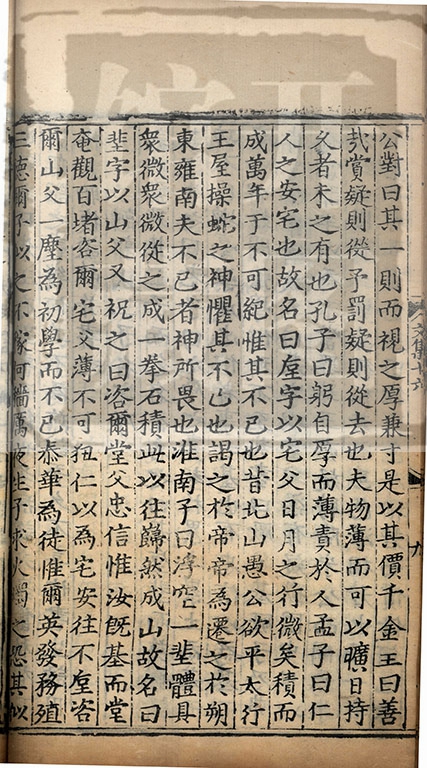 公對曰其一則而視之厚兼寸是以其價千金王曰善
哉賞疑則從予罰疑則從去也夫物薄而可以曠日持
久者未之有也孔子曰躬自厚而薄責於人孟子曰仁
人之安宅也故名曰垕字以宅父日月之行微矣積而
成萬年于不可紀惟其不已也昔北山愚公欲平太行
王屋操蛇之神懼其不已也謁之於帝帝為遷之於朔
東雍南夫不已者神所畏也淮南子曰浮空一𡋯體具
衆微衆微從之成一拳石積此以往巋然成山故名曰
𡋯字以山父又祝之曰咨爾堂父忠信惟汝旣基而堂
奄觀百堵咨爾宅父薄不可 仁以為宅安往不垕咨
爾山父一塵為初學而不已泰華為徒惟爾英發務殖
三德爾予以之不 河 厲夜生子求火燭之恐其似
文集
九